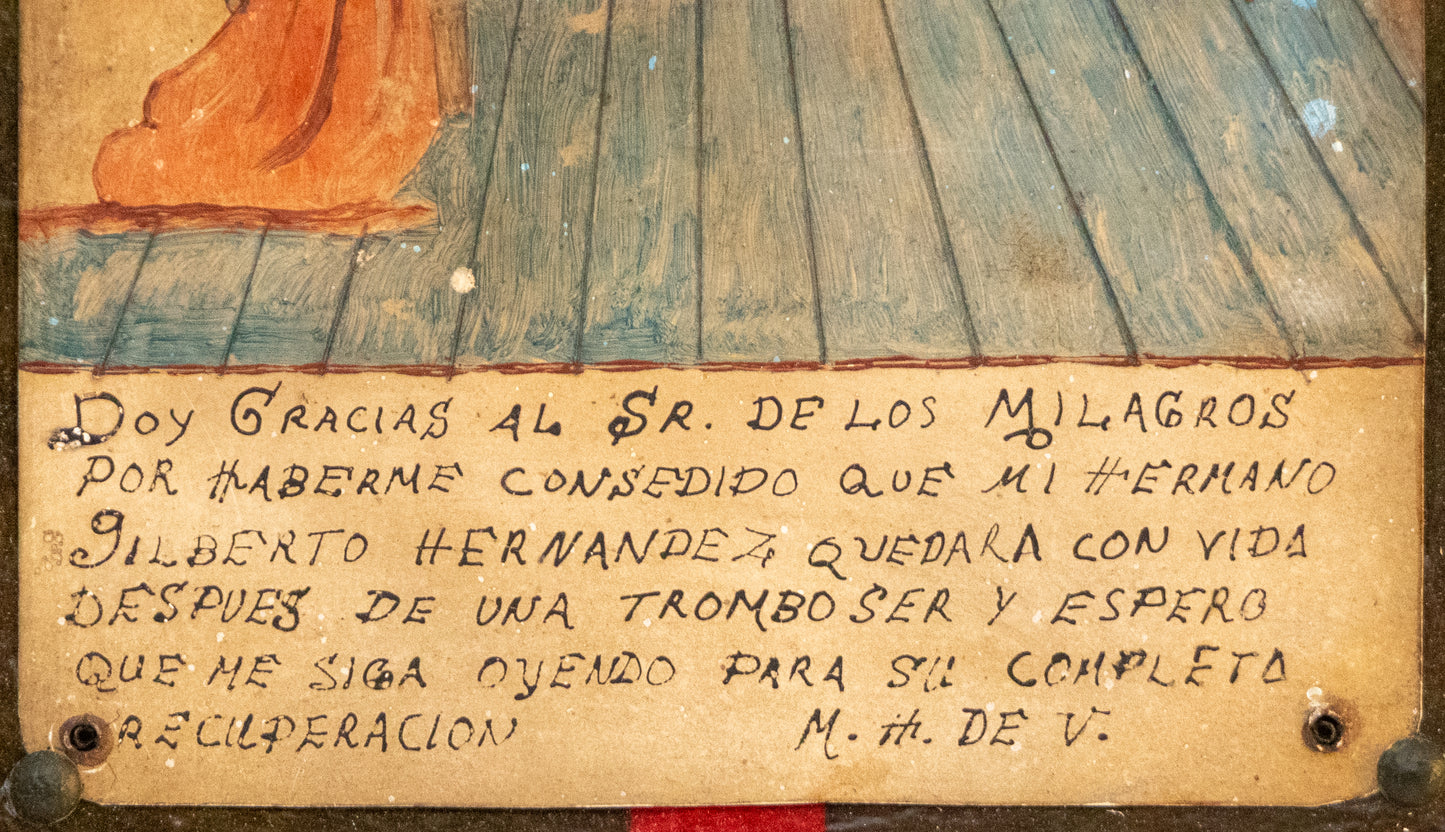 DOY GRACIAS AL SR. DE LOS MILAGROS
POR HABERME CONSEDIDO QUE MI HERMANO
GILBERTO HERNANDEZ QUEDARA CON VIDA
DESPUES DE UNA TROMBOSER Y ESPERO
QUE ME SIGA OYENDO PARA SU COMPLETA
RECUPERACION M. H. DE V.